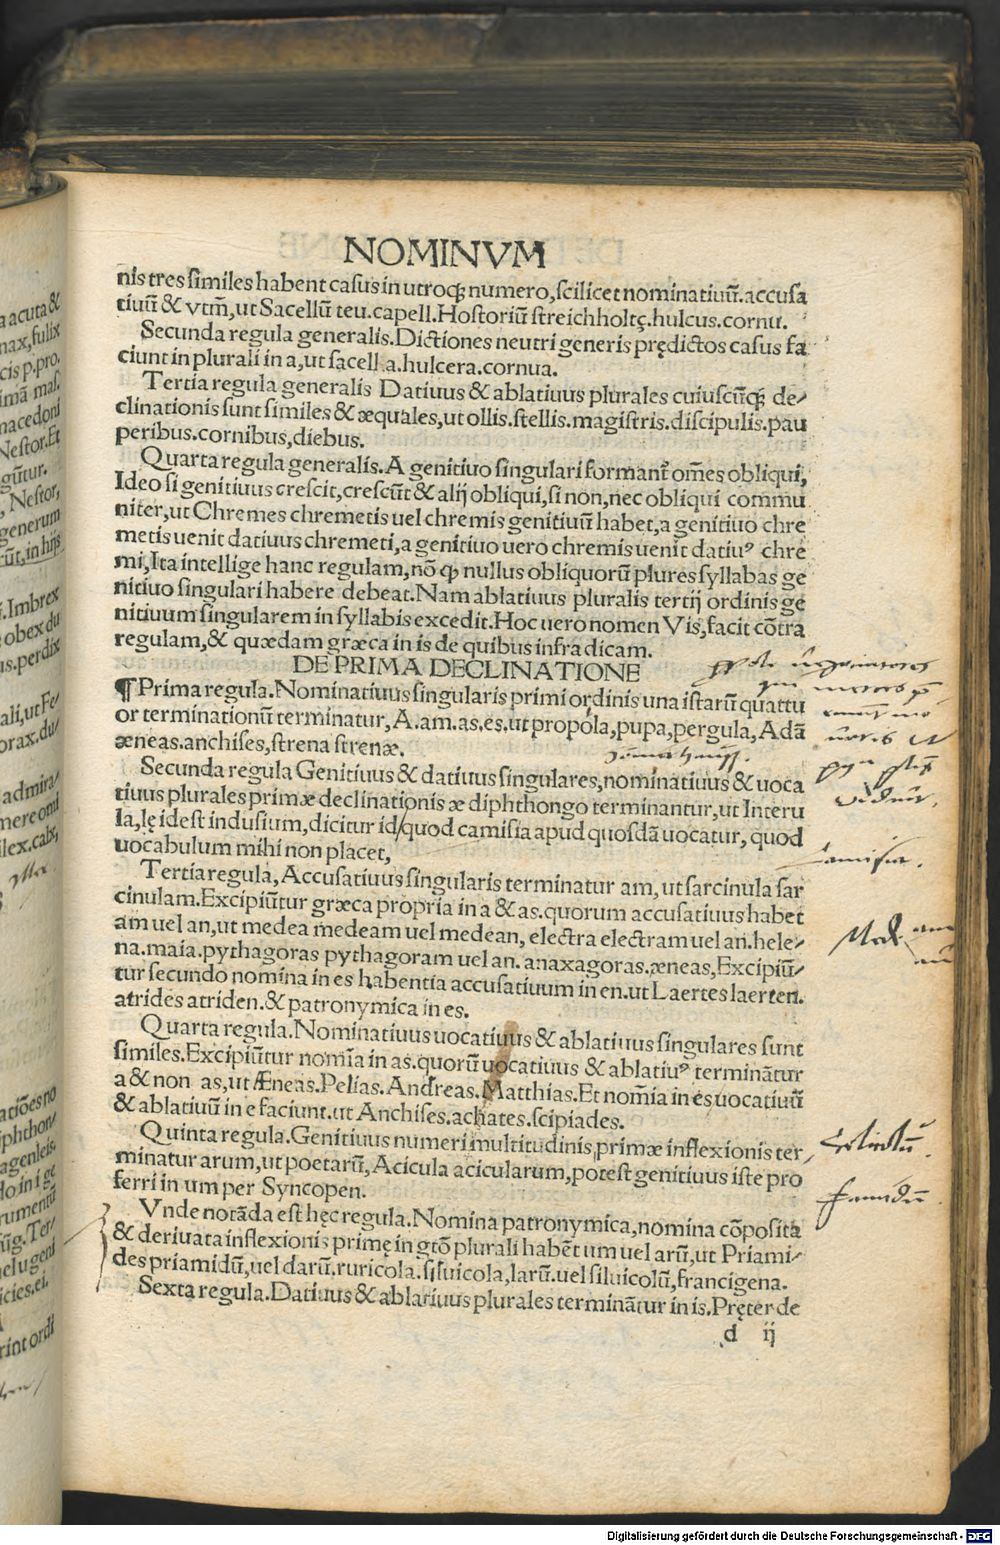 NOMINVM
nis tres similes habent casus in utroq; numero, scilicet nominatiuū. accusa
tiuū & vtm̄, ut Sacellū teu. capell. Hostoriū streichholtę. hulcus. cornu.
Secunda regula generalis. Dictiones neutri generis prędictos casus fa
ciunt in plurali in a, ut sacell a. hulcera. cornua.
Tertia regula generalis Datiuus & ablatiuus plurales cuiuscūq; de-
clinationis sunt similes & æquales, ut ollis. stellis. magistris. discipulis. pau
peribus. cornibus, diebus.
Quarta regula generalis. A genitiuo singulari formant̄ om̄es obliqui,
Ideo si genitiuus crescit, crescūt & alij obliqui, si non, nec obliqui commu
niter, ut Chremes chremetis uel chremis genitiuū habet, a genitiuo chre
metis uenit datiuus chremeti, a genitiuo uero chremis uenit datiuꝰ chre
mi, Ita intellige hanc regulam, nō ꝙ nullus obliquorū plures syllabas ge
nitiuo singulari habere debeat. Nam ablatiuus pluralis tertij ordinis ge
nitiuum singularem in syllabis excedit. Hoc uero nomen Vis, facit cōtra
regulam, & quædam græca in is de quibus infra dicam.
DE PRIMA DECLINATIONE
¶ Prima regula. Nominatiuus singularis primi ordinis una istarū quattu
or terminationū terminatur, A. am. as. es. ut propola, pupa, pergula, Adā
æneas. anchises, strena strenæ.
Secunda regula Genitiuus & datiuus singulares, nominatiuus & uoca
tiuus plurales primæ declinationis æ diphthongo terminantur, ut Interu
la, lę idest indusium, dicitur id/quod camisia apud quosdā uocatur, quod
uocabulum mihi non placet,
camisia.
Tertia regula, Accusatiuus singularis terminatur am, ut sarcinula sar
cinulam. Excipiūtur græca propria in a & as. quorum accusatiuus habet
am uel an, ut medea medeam uel medean, electra electram uel an. hele-
na. maia. pythagoras pythagoram uel an. anaxagoras. æneas, Excipiū-
tur secundo nomina in es habentia accusatiuum in en. ut Laertes laerten.
atrides atriden. & patronymica in es.
Quarta regula. Nominatiuus uocatiuus & ablatiuus singulares sunt
similes. Excipiūtur nomīa in as. quorū uocatiuus & ablatiuꝰ terminātur
a & non as, ut Æneas. Pelias. Andreas. Matthias. Et nomīa in es uocatiuū
& ablatiuū in e faciunt. ut Anchises. achates. scipiades.
Quinta regula. Genitiuus numeri multitudinis primæ inflexionis ter
minatur arum, ut poetarū, Acicula acicularum, potest genitiuus iste pro
ferri in um per Syncopen.
Vnde notāda est hęc regula. Nomina patronymica, nomina cōposita
& deriuata inflexionis primę in gtō plurali habēt um uel arū, ut Priami-
des priamidū, uel darū. ruricola. siluicola, larū. uel siluicolū, francigena.
Sexta regula. Datiuus & ablatiuus plurales terminātur in is. Pręter de
d ij
Digitalisierung gefördert durch die Deutsche Forschungsgemeinschaft - DFG